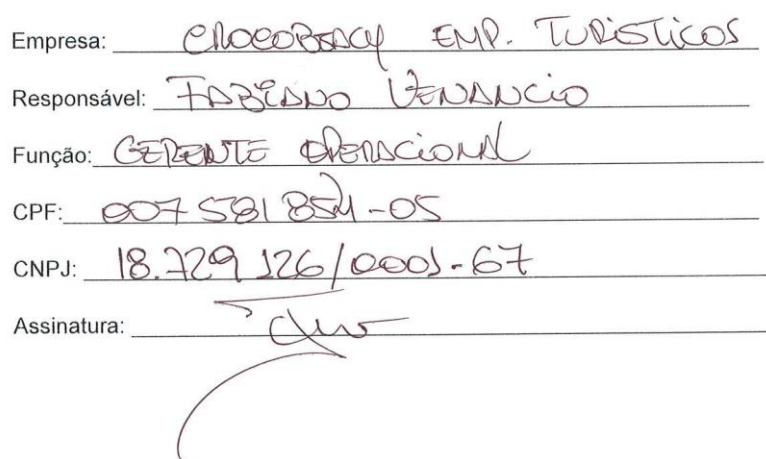 Empresa: CROCOBEACH EMP. TURISTICOS
Responsável: FABIANO VENANCIO
Função: GERENTE OPERACIONAL
CPF: 007 581 854-05
CNPJ: 18.729 126/0001-67
Assinatura: